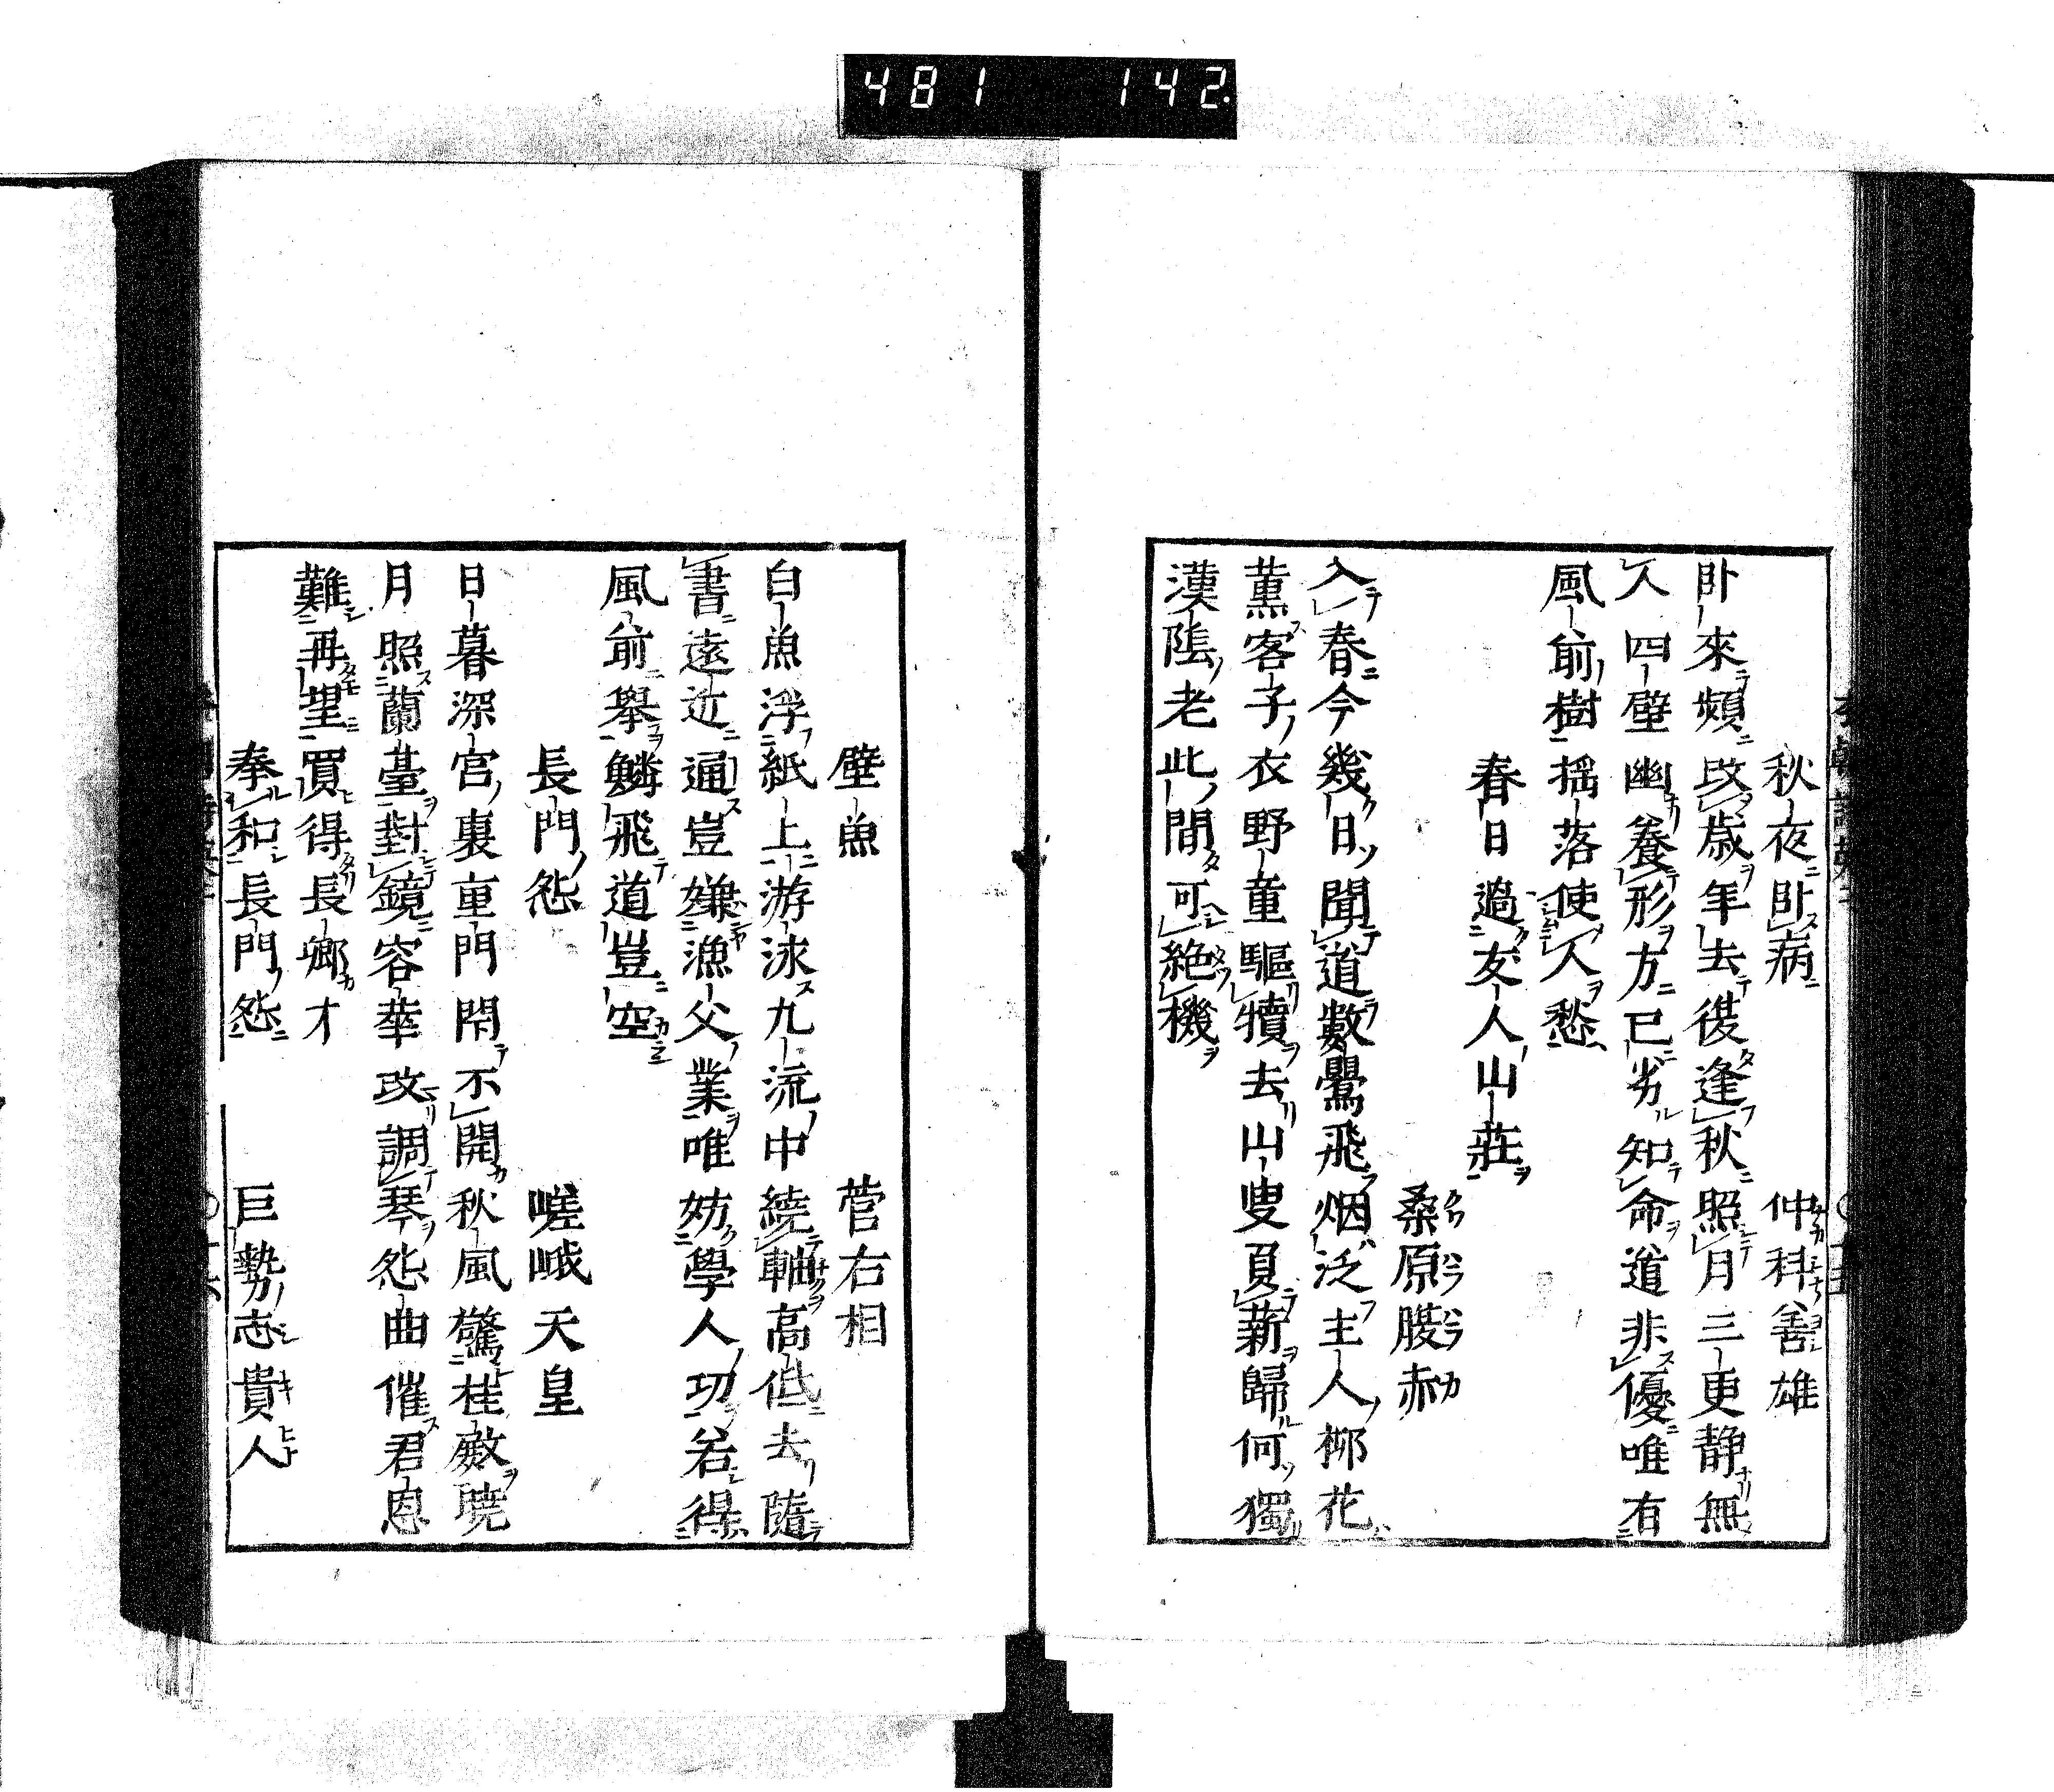 481 142
秋夜臥病 仲科善雄
臥來頻改歲年去復逢秋照月三更静無
人四壁幽養形方已劣知命道非優唯有
風前樹揺落使人愁
春日過友人山莊
桑原腹赤
入春今幾日聞道數鸎飛烟泛主人栁花
薫客子衣野童驅犢去山叟負薪歸何獨
漢陰老此間可絶機
壁魚 菅右相
白魚浮紙上游泳九流中繞軸高低去隨
書遠近通豈嫌漁父業唯妨學人功若得
風前擧鱗飛道豈空
長門怨 嵯峨天皇
日暮深宮裏重門閇不開秋風驚桂殿曉
月照蘭臺對鏡容華改調琴怨曲催君恩
難再望買得長卿才
奉和長門怨 巨勢志貴人